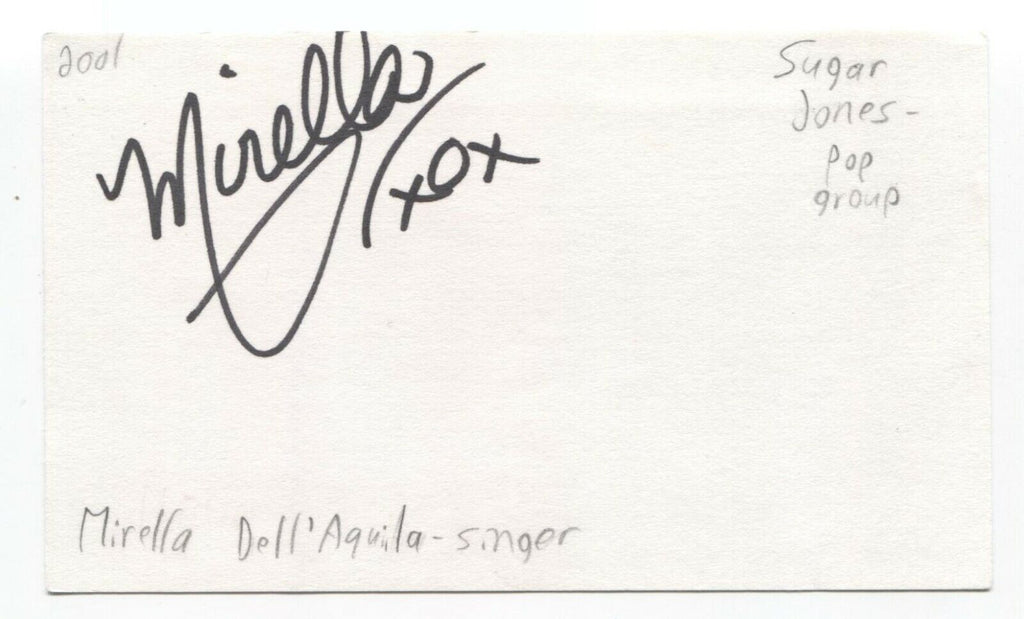 2001
Mirella
xox
Sugar
Jones-
Pop
group
Mirella Dell'Aquila-singer